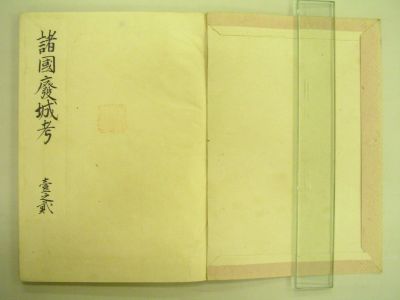 諸國廢城考
壹之貳